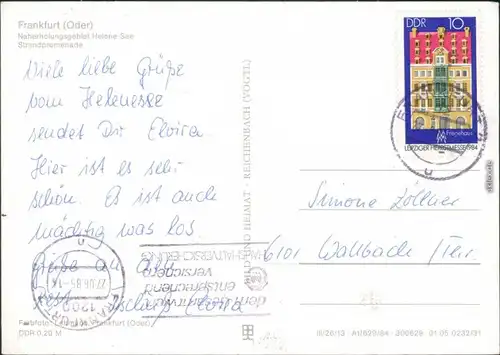 Frankfurt (Oder)
Naherholungsgebiet Helene See
Strandpromenade
Viele liebe Grüße
vom Helenesee
sendet Dir Elvira
Hier ist es sehr
schön. Es ist auch
mächtig was los.
Elvira
DDR 10
Fregehaus
LEIPZIGER HERBSTMESSE 1984
Simone Zöllner
6101 Wallbach / Thür.
BILD UND HEIMAT · REICHENBACH (VOGTL)
27.06.85-14
1200
FRANKFURT
HAUSHALTVERSICHERUNG
entsprechend
versichern
Frankfurt (Oder)
DDR 0,20 M
III/26/13 A1/629/84 300629 01 05 0232/31